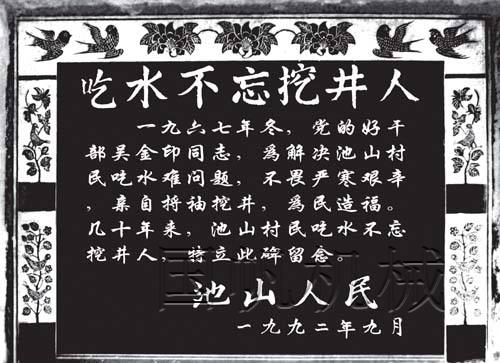 吃水不忘挖井人
一九六七年冬，党的好干
部吴金印同志，为解决池山村
民吃水难问题，不畏严寒艰辛
，亲自捋袖挖井，为民造福。
几十年来，池山村民吃水不忘
挖井人，特立此碑留念。
池山人民
一九九二年九月
国帆机械